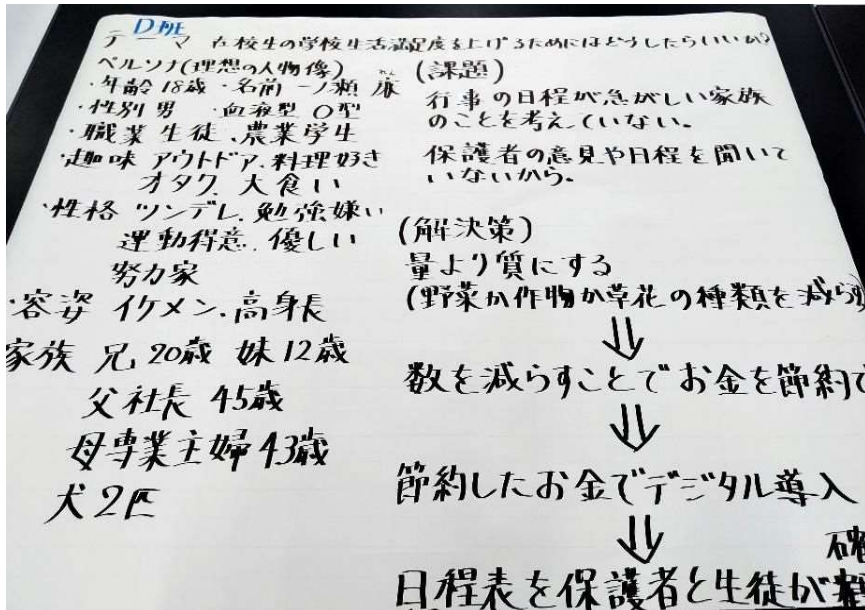 D班
テーマ 在校生の学校生活満足度を上げるためにはどうしたらいいか?
ペルソナ(理想の人物像)
・年齢 18歳 ・名前 一ノ瀬 廉
・性別 男 ・血液型 O型
・職業 生徒、農業学生
・趣味 アウトドア、料理好き
オタク、大食い
・性格 ツンデレ、勉強嫌い
運動得意、優しい
努力家
・容姿 イケメン、高身長
家族 兄 20歳 妹 12歳
父 社長 45歳
母 専業主婦 43歳
犬 2匹
(課題)
行事の日程が急がしい家族
のことを考えていない。
保護者の意見や日程を聞いて
いないから。
(解決策)
量より質にする
(野菜か作物か草花の種類を減らす
⇓
数を減らすことでお金を節約で
⇓
節約したお金でデジタル導入
⇓
日程表を保護者と生徒が